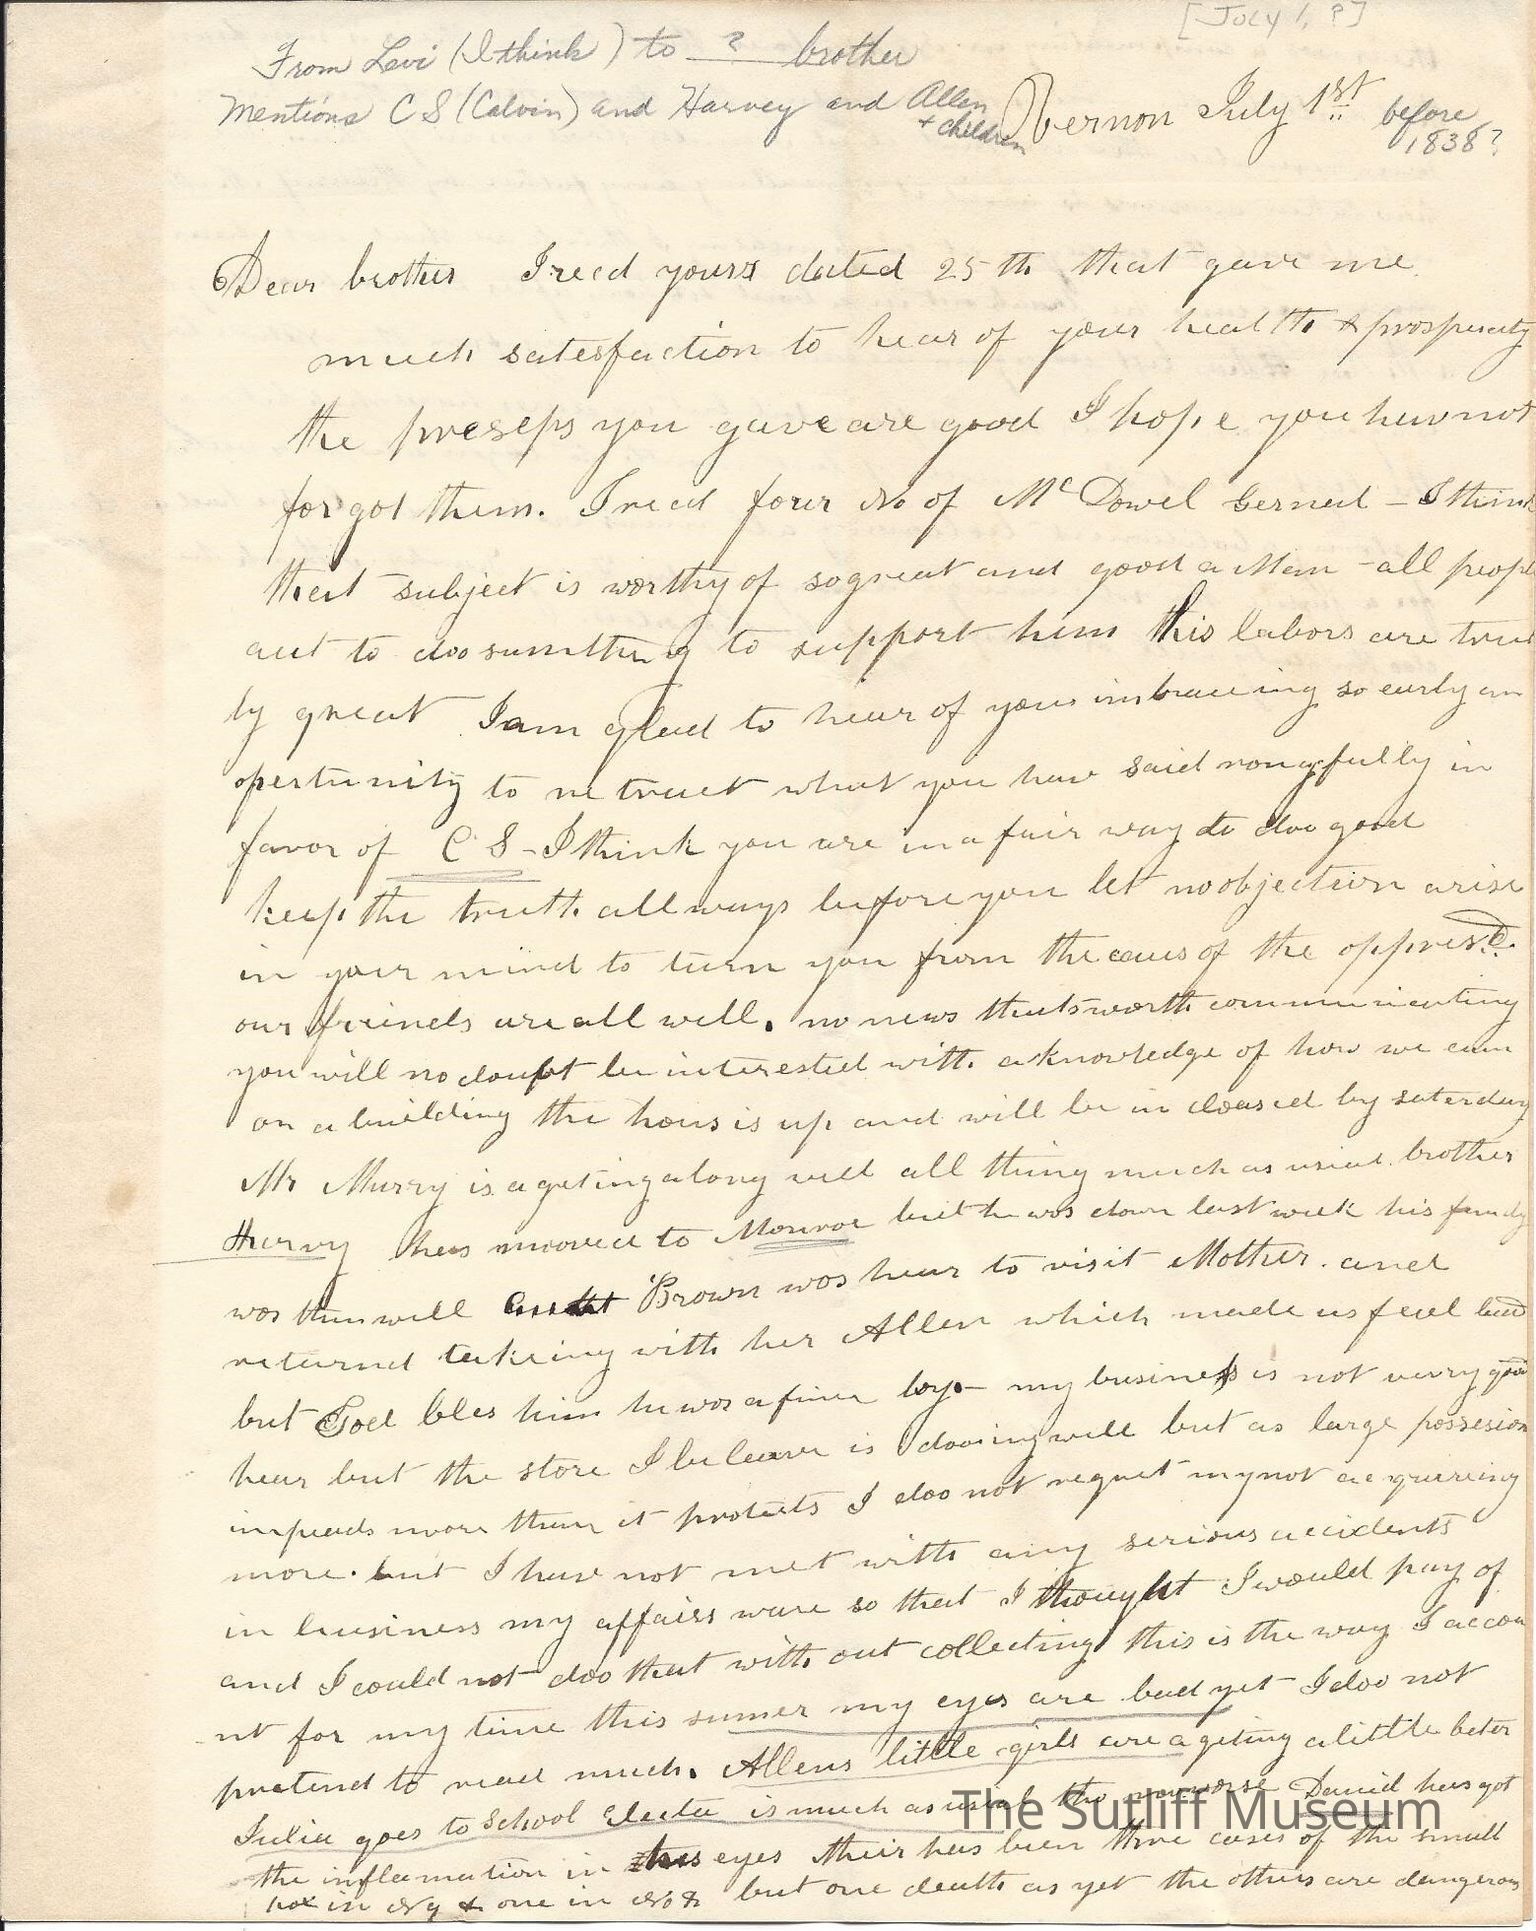 [July 1, ?]
From Levi (I think) to ? brother
Mentions C S (Calvin) and Harvey and Allen
+ children
Vernon July 1st before
1838?
Dear brother I recd yours dated 25 th that gave me
much satesfaction to hear of your health & prosperity
the preseps you gave are good I hope you hav not
forgot them. I recd four No of Mc Dowel - I think
that subject is worthy of so great and good a Man - all peopl
aut to doo sumthing to support him his labors are true
ly great I am glad to hear of your imbraceing so early an
opertunity to retract what you have said rongfully in
favor of C S - I think you are in a fair way to doo good
keep the truth all ways before you let no objection arise
in your mind to turn you from the caus of the oppresd.
our friends are all well. no news thats worth communicating
you will no doupt be interested with a knowledge of how we cum
on a building the hous is up and will be in closed by saterday
Mr Murry is a geting along well all thing much as usial. brother
Harvy has mooved to Monroe but he was down last week his family
was then well Brown was hear to visit Mother. and
returnd takeing with her Allen which made us feel bad
but God bles him he was a fine boy - my business is not verry good
hear but the store I beleave is dooing well but as large possesion
impeads more than it protects I doo not regret my not acquireing
more. but I have not met with any serious accidents
in business my affairs ware so that I thought I would pay of
and I could not doo that with out collecting this is the way I accou
nt for my time this sumer my eyes are bad yet I doo not
pretend to read much. Allens little girls are a geting a little beter
Julia goes to School Electa is much as usial tho no worse David has got
the inflamation in his eyes their has been three cases of the small
pox in & one in but one death as yet the others are dangerous
The Sutliff Museum